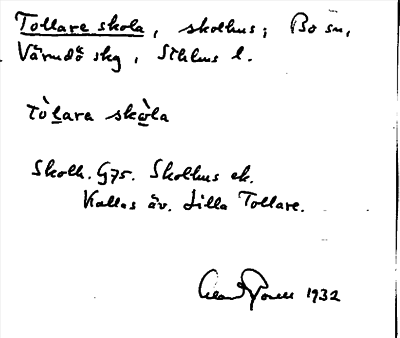 Tollare skola, skolhus; Boo sn,
Värmdö skg, Sthlms l.
Tò̀lara skò̀la
Skolh. G75. Skolhus ek.
Kallas äv. Lilla Tollare.
1932